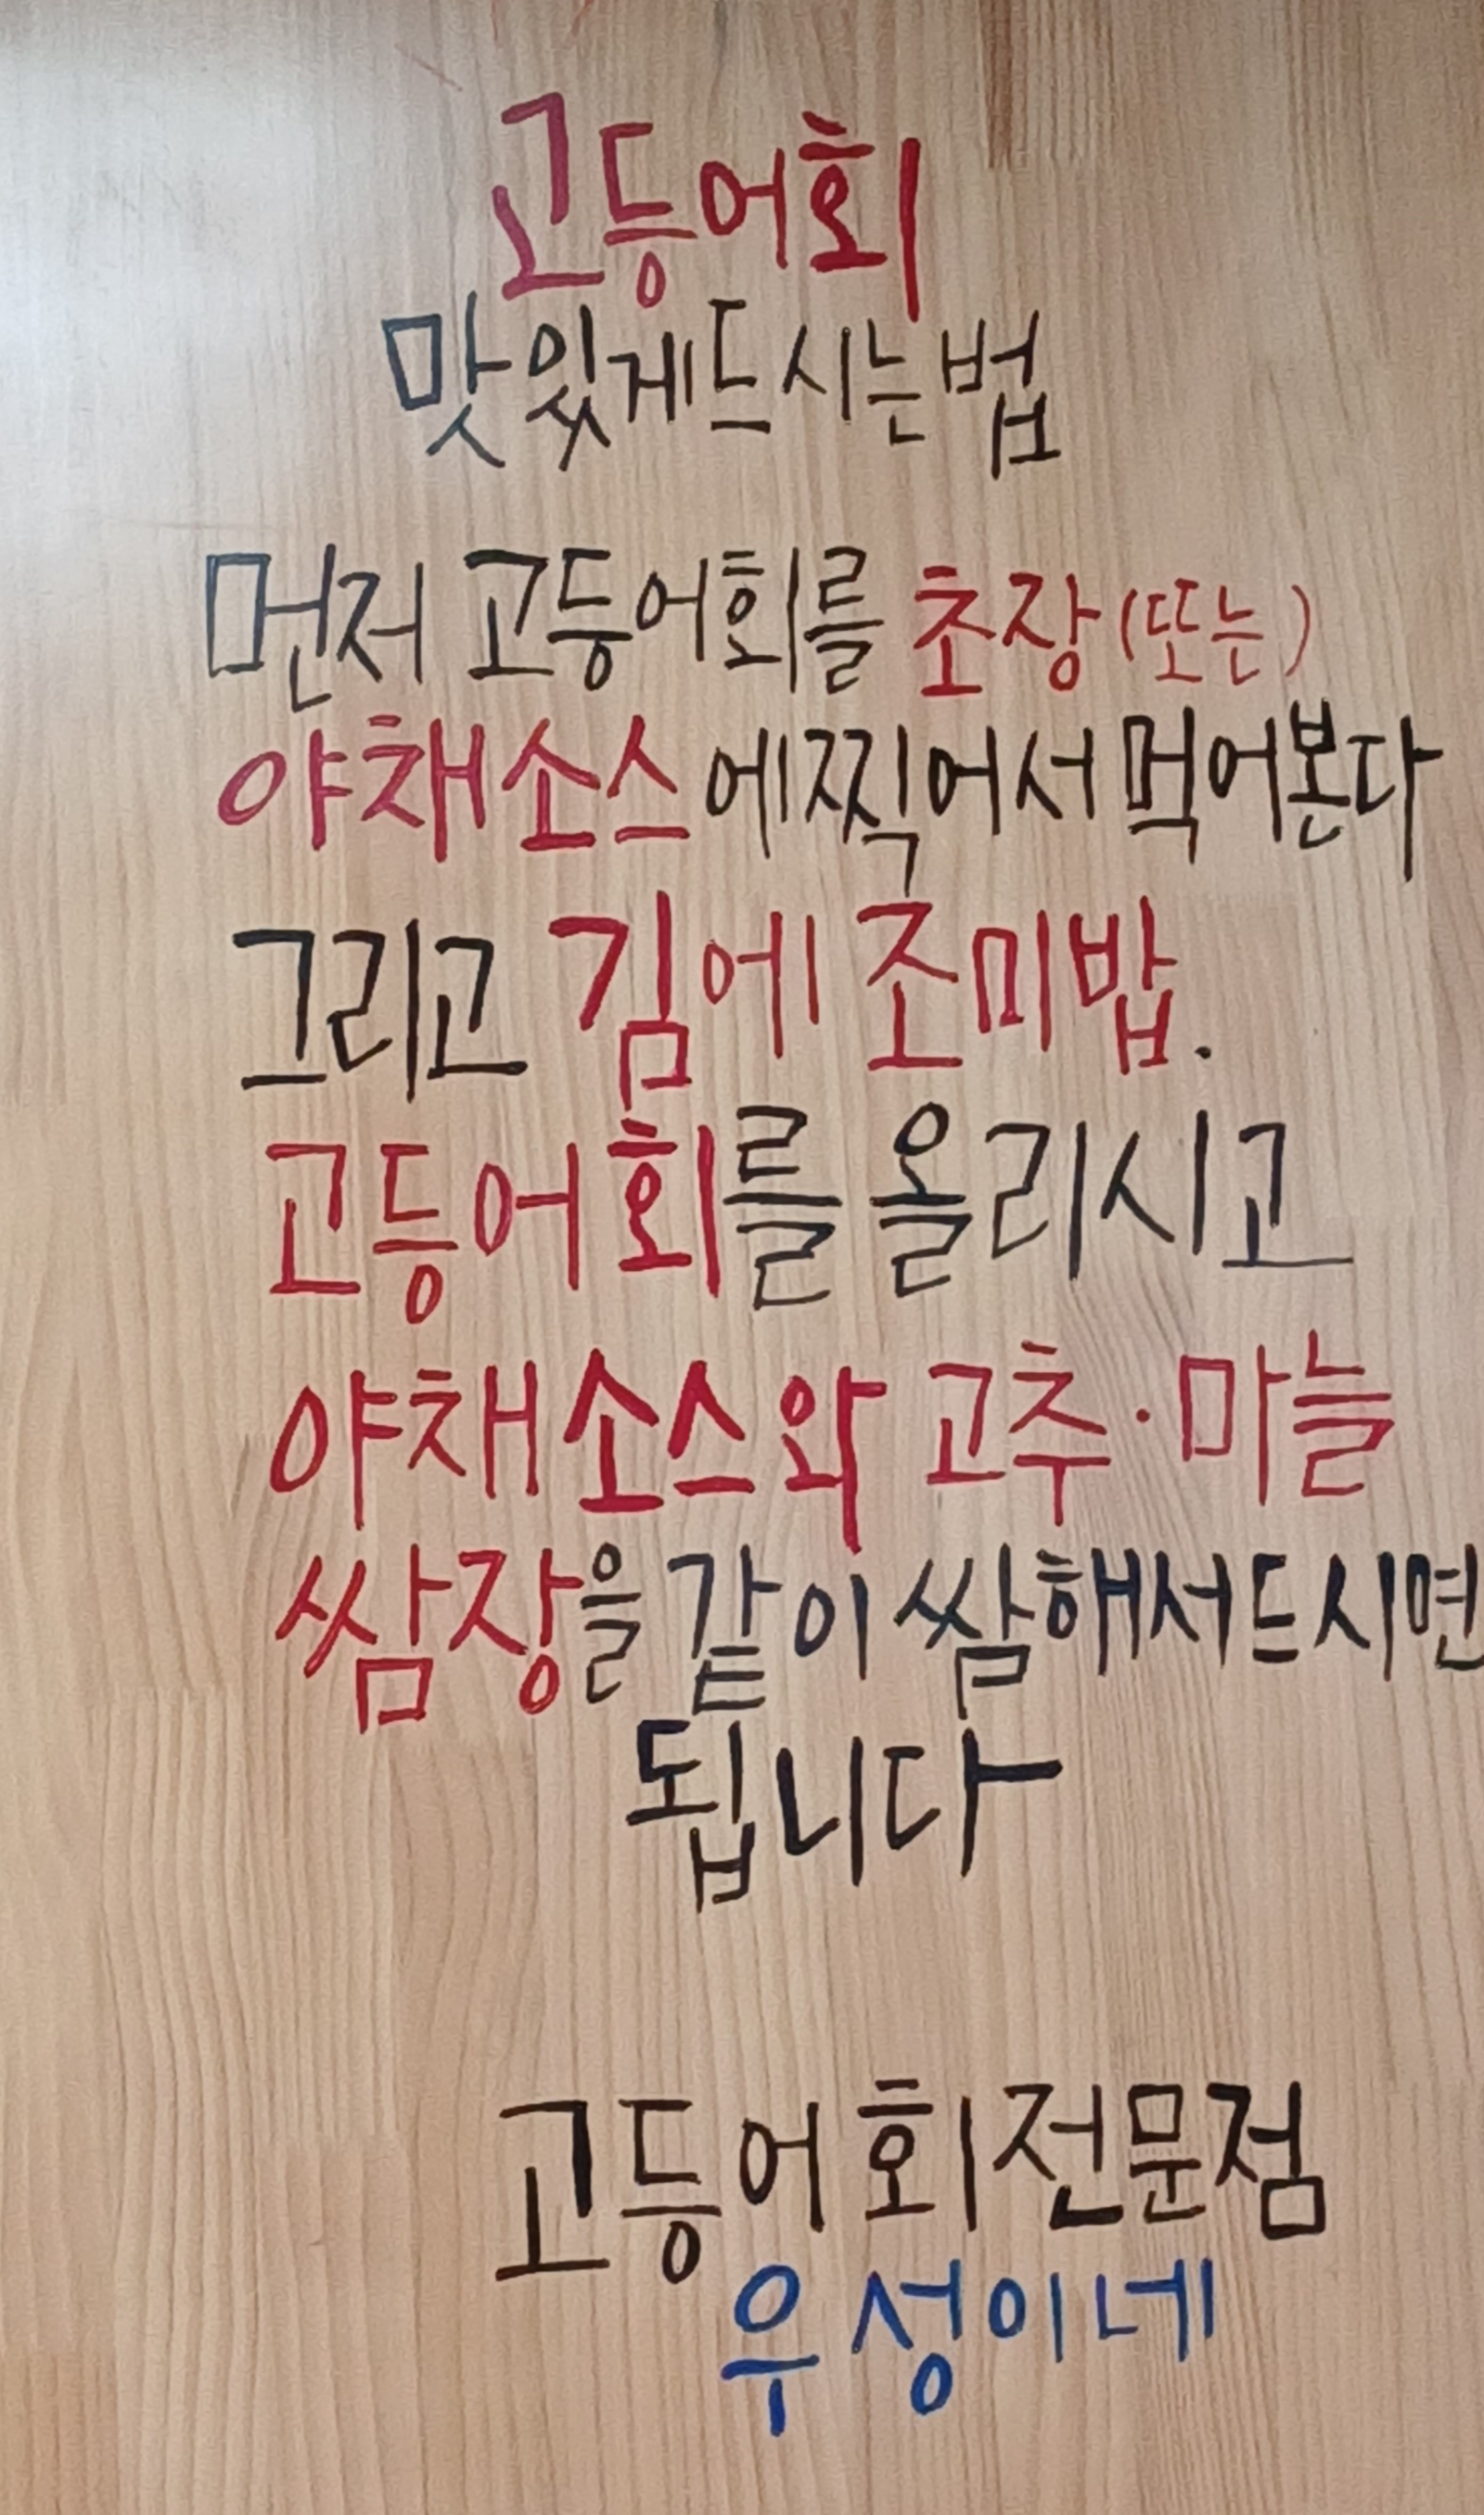 고등어회
맛있게드시는법
먼저 고등어회를 초장(또는)
야채소스에찍어서 먹어본다
그리고 김에 조미밥.
고등어회를 올리시고
야채소스와 고추·마늘
쌈장을 같이 쌈해서드시면
됩니다
고등어회전문점
우성이네